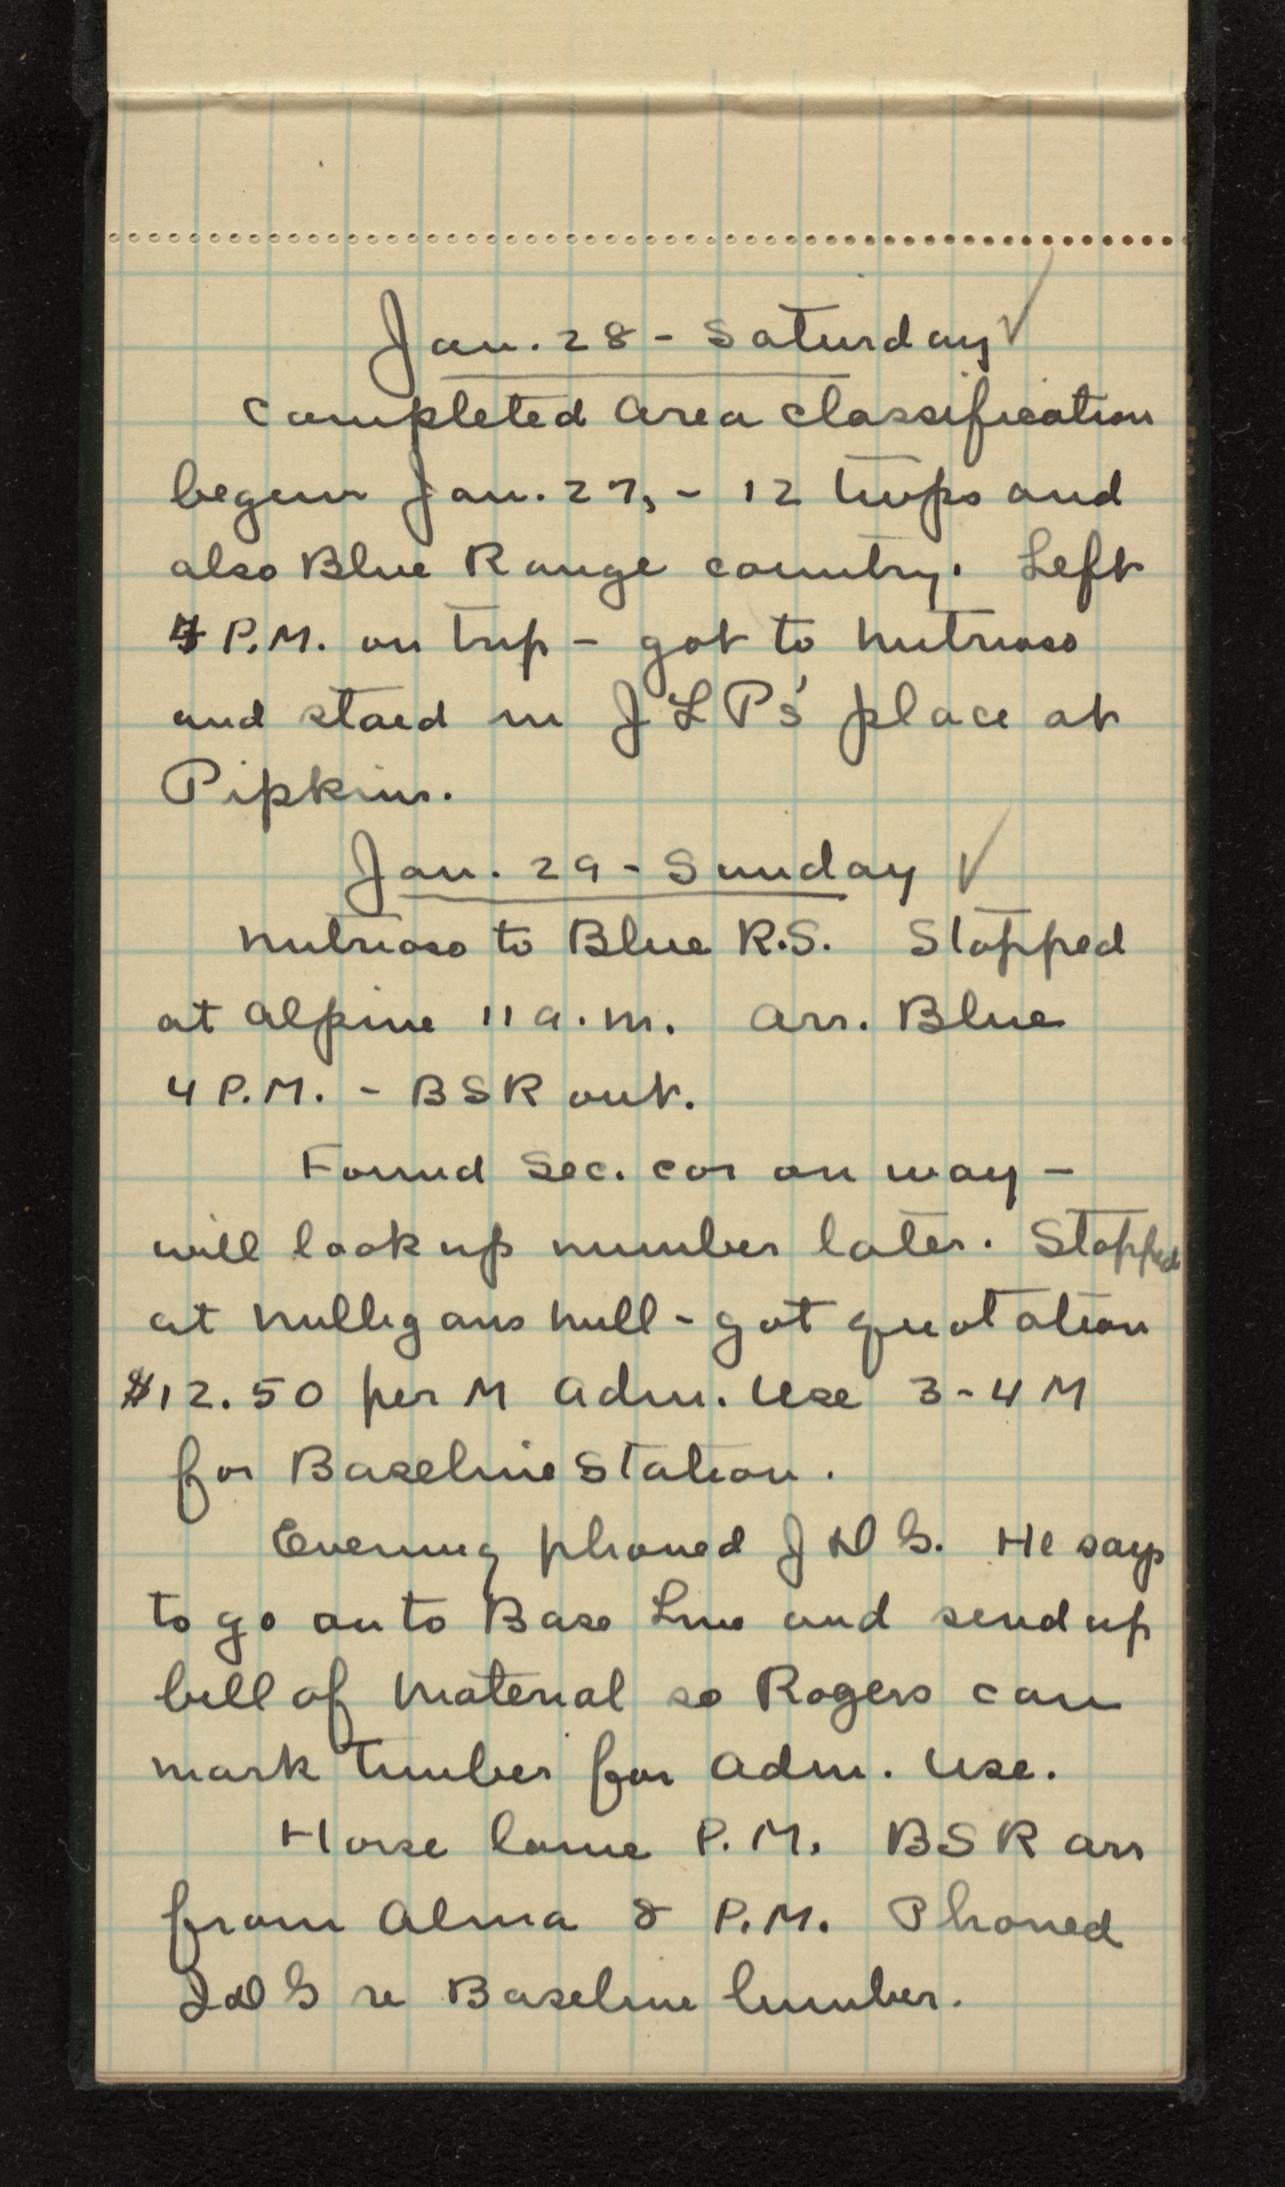 Jan. 28 - Saturday ✓
Completed area classification
begun Jan. 27, - 12 twps and
also Blue Range country. Left
4 P.M. on trip - got to Nutrioso
and staed in JLP's place at
Pipkins.
Jan. 29 - Sunday ✓
Nutrioso to Blue R.S. Stopped
at Alpine 11 a.m. Arr. Blue
4 P.M. - BSR out.
Found Sec. cor on way -
will look up number later. Stopped
at Mulligans Mill - got quotation
$12.50 per M Adm. Use 3-4 M
for Baseline Station.
Evening phoned JDG. He says
to go on to Base Line and send up
bill of material so Rogers can
mark timber for Adm. Use.
Horse lame P.M. BSR arr
from Alma 8 P.M. Phoned
JDG re Baseline lumber.